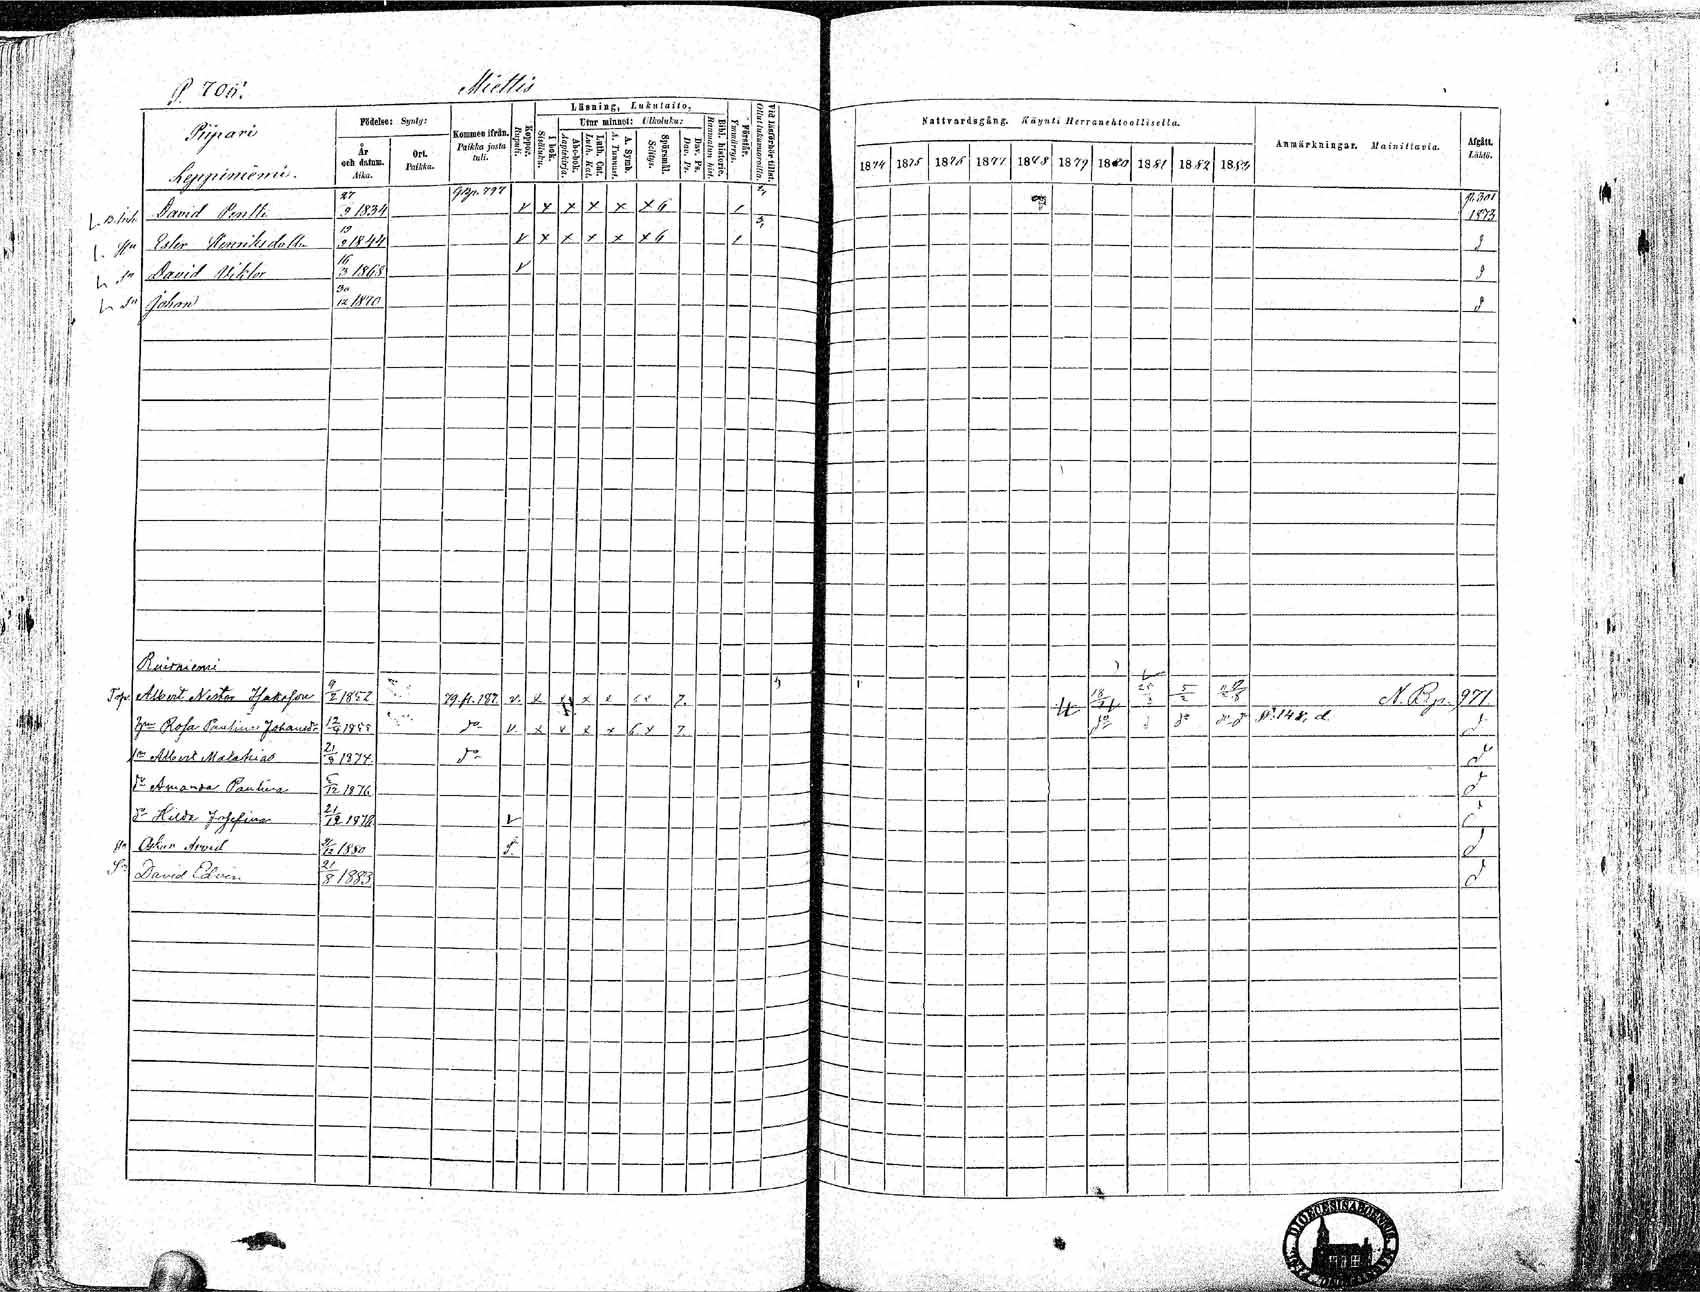 P. 705.
Miettis
Piipari
Leppiniemi.
Födelse: Synty:
År och datum. Aika.
Ort. Paikka.
Kommen ifrån. Paikka josta tuli.
Koppor. Rupuli.
Läsning, Lukutaito,
I bok. Sisäluku.
Utur minnet: Ulkoluku:
Abc-bok. Aapiskirja.
Luth. Cat. Luth. Kat.
A. Symb. A. Tunnust.
Spörsmål. Selitys.
Dav. Ps. Dav. Ps.
Bibl. historie. Raamatun hist.
Förstår. Ymmärrys.
Vid läsförhör tillst. Ollut lukuvuoroilla.
Nattvardsgång. Käynti Herranehtoollisella.
1874 1875 1876 1877 1878 1879 1880 1881 1882 1883
Anmärkningar. Mainittavia.
Afgått. Lähtö.
David Pentti 27/9 1834 v x x x x x 6 1 fl. 301 1873
Hu Ester Henriksdotter 13/9 1844 v x x x x x 6 1 d
Sn David Viktor 16/3 1868 v d
Sn Johan 30/12 1870 d
Ruisniemi
Torp. Albert Nestor 9/2 1852 79. fl. 187. v. x x x x 7. 18 5/2 N. Bgr. 971.
Rosa Paulina Johansdr 12/4 1855 do v. x x x x 6 x 7. do do P. 148, d. d
Sn Albert Malakias 21/9 1874. do d
dr Amanda Paulina 5/12 1876 d
dr Hilda Josefina 21/12 1878 v d
Sn Oskar Arvid 9/12 1880 d
Sn David Edvin 21/8 1883 d
DIOECESIS ABOENSIS